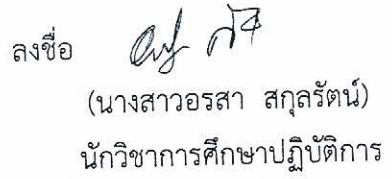 ลงชื่อ
(นางสาวอรสา สกุลรัตน์)
นักวิชาการศึกษาปฏิบัติการ